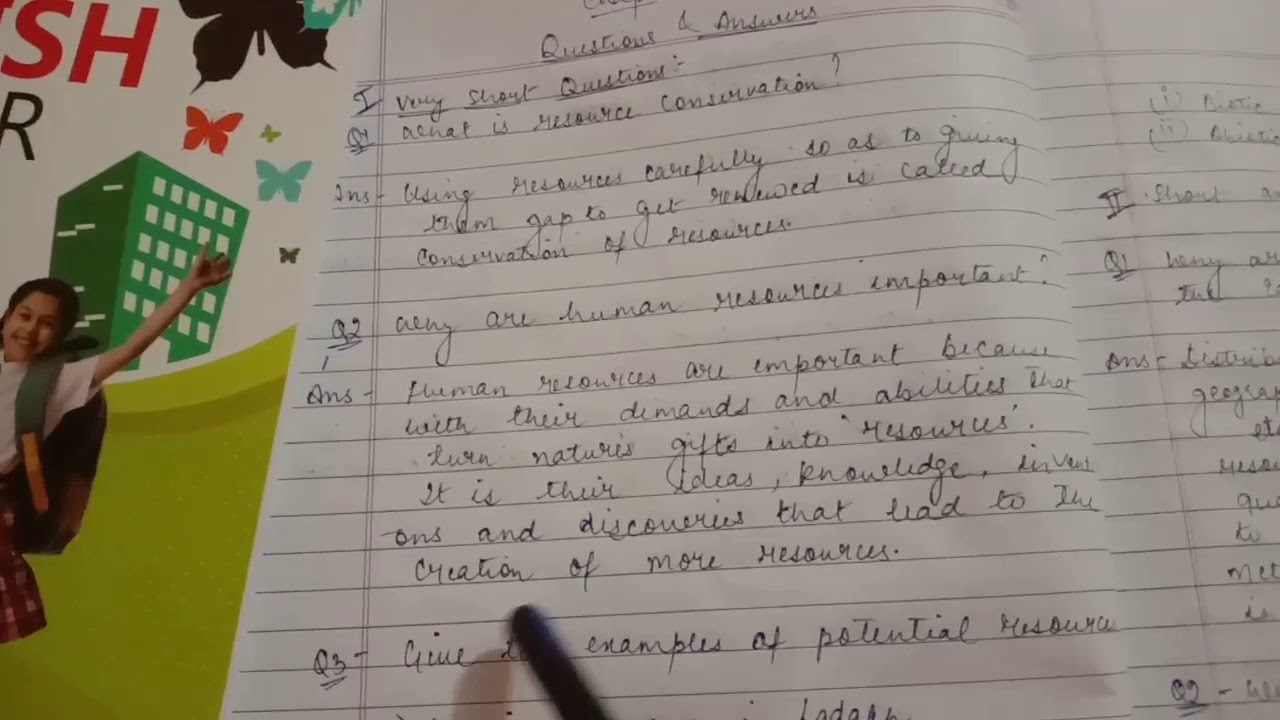 SH
R
Questions & Answers
I Very Short Questions:-
Q1 What is resource conservation?
Ans- Using resources carefully so as to giving
them gap to get renewed is called
conservation of resources.
Q2 Why are human resources important?
Ans- Human resources are important because
with their demands and abilities that
turn nature's gifts into 'resources'.
It is their ideas, knowledge, invent
ons and discoveries that lead to the
creation of more resources.
Q3- Give examples of potential resource
ladakh
(i) Biotic
(ii) Abiotic
II Short a
Q1 Why are
the
Ans- Distrib
geograp
etc
resou
qua
to
met
is
Q2 -